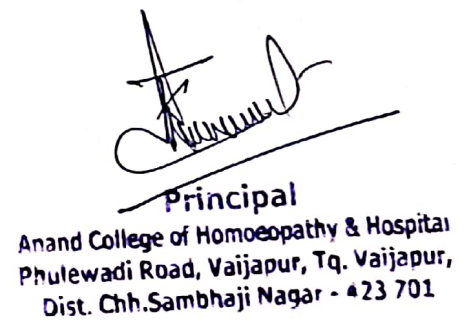 Principal
Anand College of Homoeopathy & Hospital
Phulewadi Road, Vaijapur, Tq. Vaijapur,
Dist. Chh.Sambhaji Nagar - 423 701